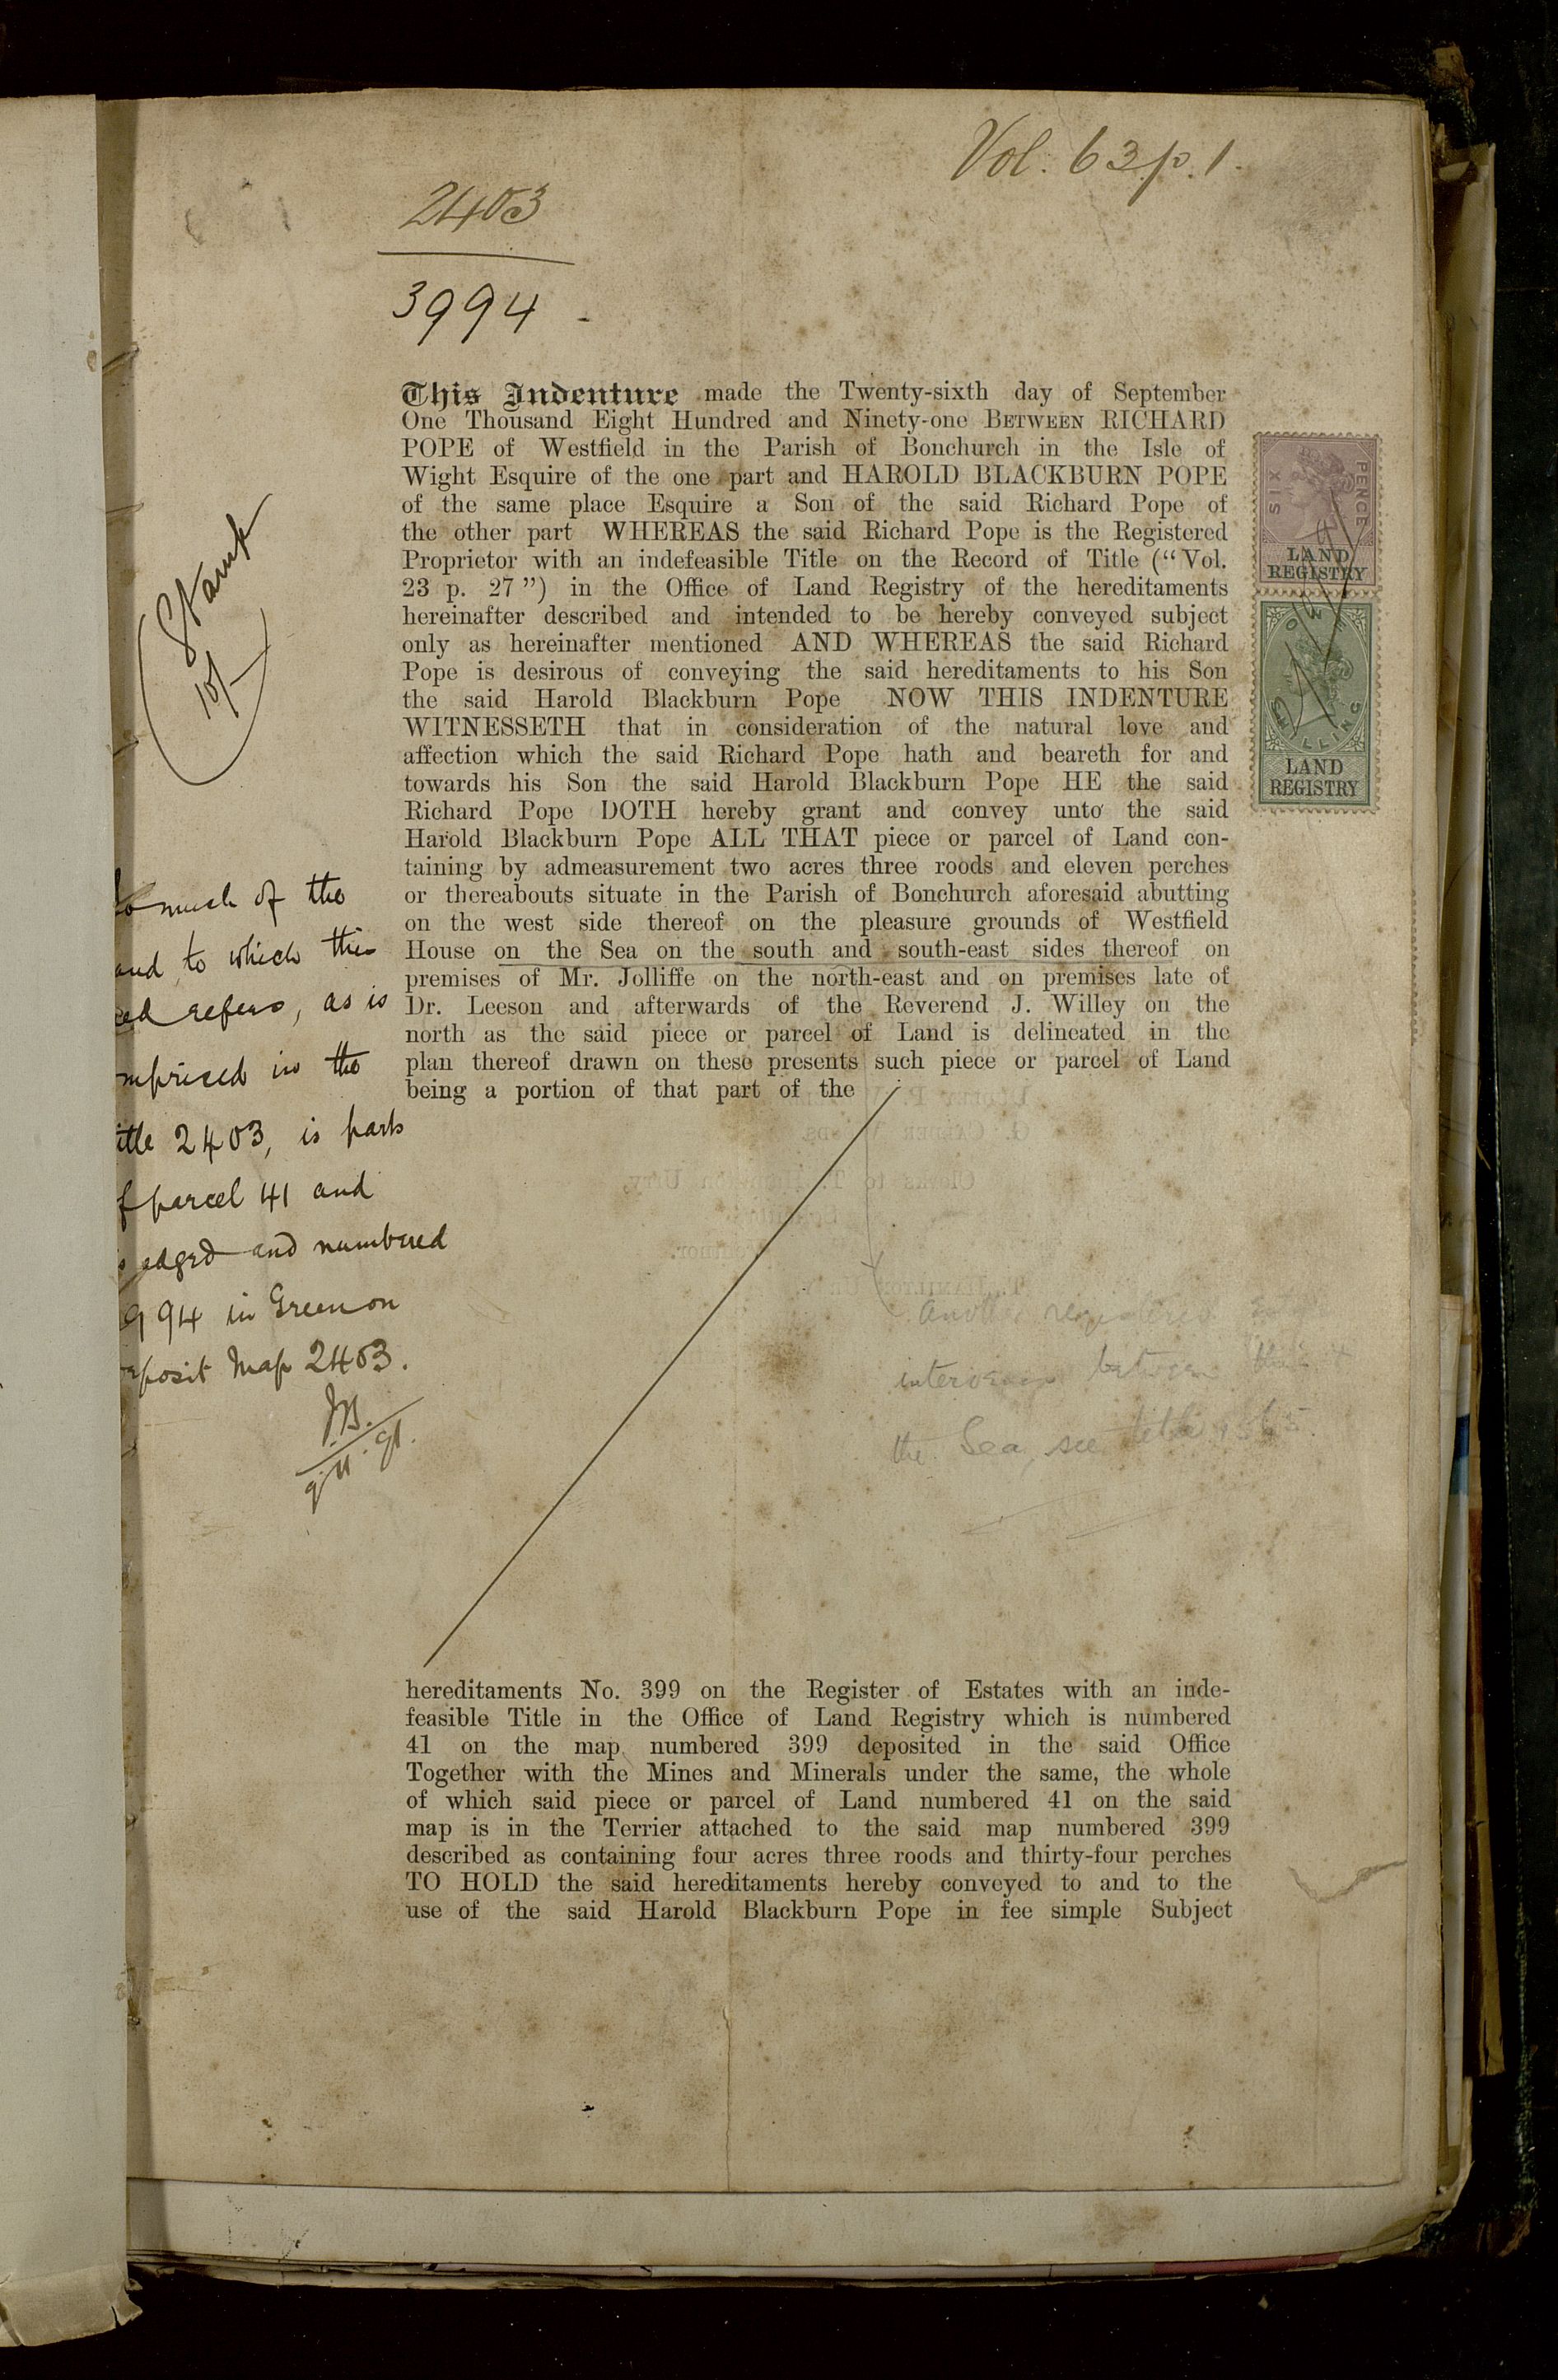 Vol. 63 p. 1.
2403
3994
This Indenture made the Twenty-sixth day of September
One Thousand Eight Hundred and Ninety-one BETWEEN RICHARD
POPE of Westfield in the Parish of Bonchurch in the Isle of
Wight Esquire of the one part and HAROLD BLACKBURN POPE
of the same place Esquire a Son of the said Richard Pope of
the other part WHEREAS the said Richard Pope is the Registered
Proprietor with an indefeasible Title on the Record of Title (“Vol.
23 p. 27”) in the Office of Land Registry of the hereditaments
hereinafter described and intended to be hereby conveyed subject
only as hereinafter mentioned AND WHEREAS the said Richard
Pope is desirous of conveying the said hereditaments to his Son
the said Harold Blackburn Pope NOW THIS INDENTURE
WITNESSETH that in consideration of the natural love and
affection which the said Richard Pope hath and beareth for and
towards his Son the said Harold Blackburn Pope HE the said
Richard Pope DOTH hereby grant and convey unto the said
Harold Blackburn Pope ALL THAT piece or parcel of Land con-
taining by admeasurement two acres three roods and eleven perches
or thereabouts situate in the Parish of Bonchurch aforesaid abutting
on the west side thereof on the pleasure grounds of Westfield
House on the Sea on the south and south-east sides thereof on
premises of Mr. Jolliffe on the north-east and on premises late of
Dr. Leeson and afterwards of the Reverend J. Willey on the
north as the said piece or parcel of Land is delineated in the
plan thereof drawn on these presents such piece or parcel of Land
being a portion of that part of the
hereditaments No. 399 on the Register of Estates with an inde-
feasible Title in the Office of Land Registry which is numbered
41 on the map numbered 399 deposited in the said Office
Together with the Mines and Minerals under the same, the whole
of which said piece or parcel of Land numbered 41 on the said
map is in the Terrier attached to the said map numbered 399
described as containing four acres three roods and thirty-four perches
TO HOLD the said hereditaments hereby conveyed to and to the
use of the said Harold Blackburn Pope in fee simple Subject
Stamp
10/-
so much of the
and to which this
ed refers, as is
mprised in the
itle 2403, is part
f parcel 41 and
s edged and numbered
994 in Green on
eposit Map 2403.
J.B.
9.11.91.
SIX PENCE
LAND
REGISTRY
SHILLING
LAND
REGISTRY
registered
between
the Sea see title